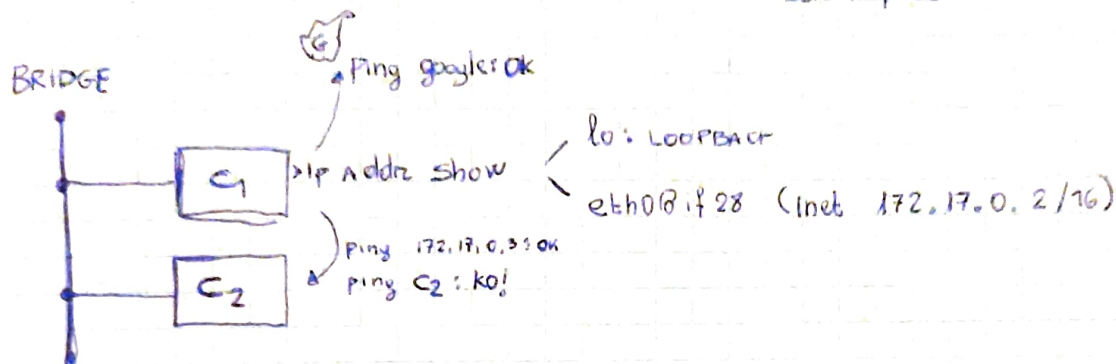 G
Ping google: OK
BRIDGE
C1
>Ip Addr show
lo: LOOPBACK
eth0@if28 (inet 172.17.0.2/16)
Ping 172.17.0.3: OK
ping C2: KO!
C2